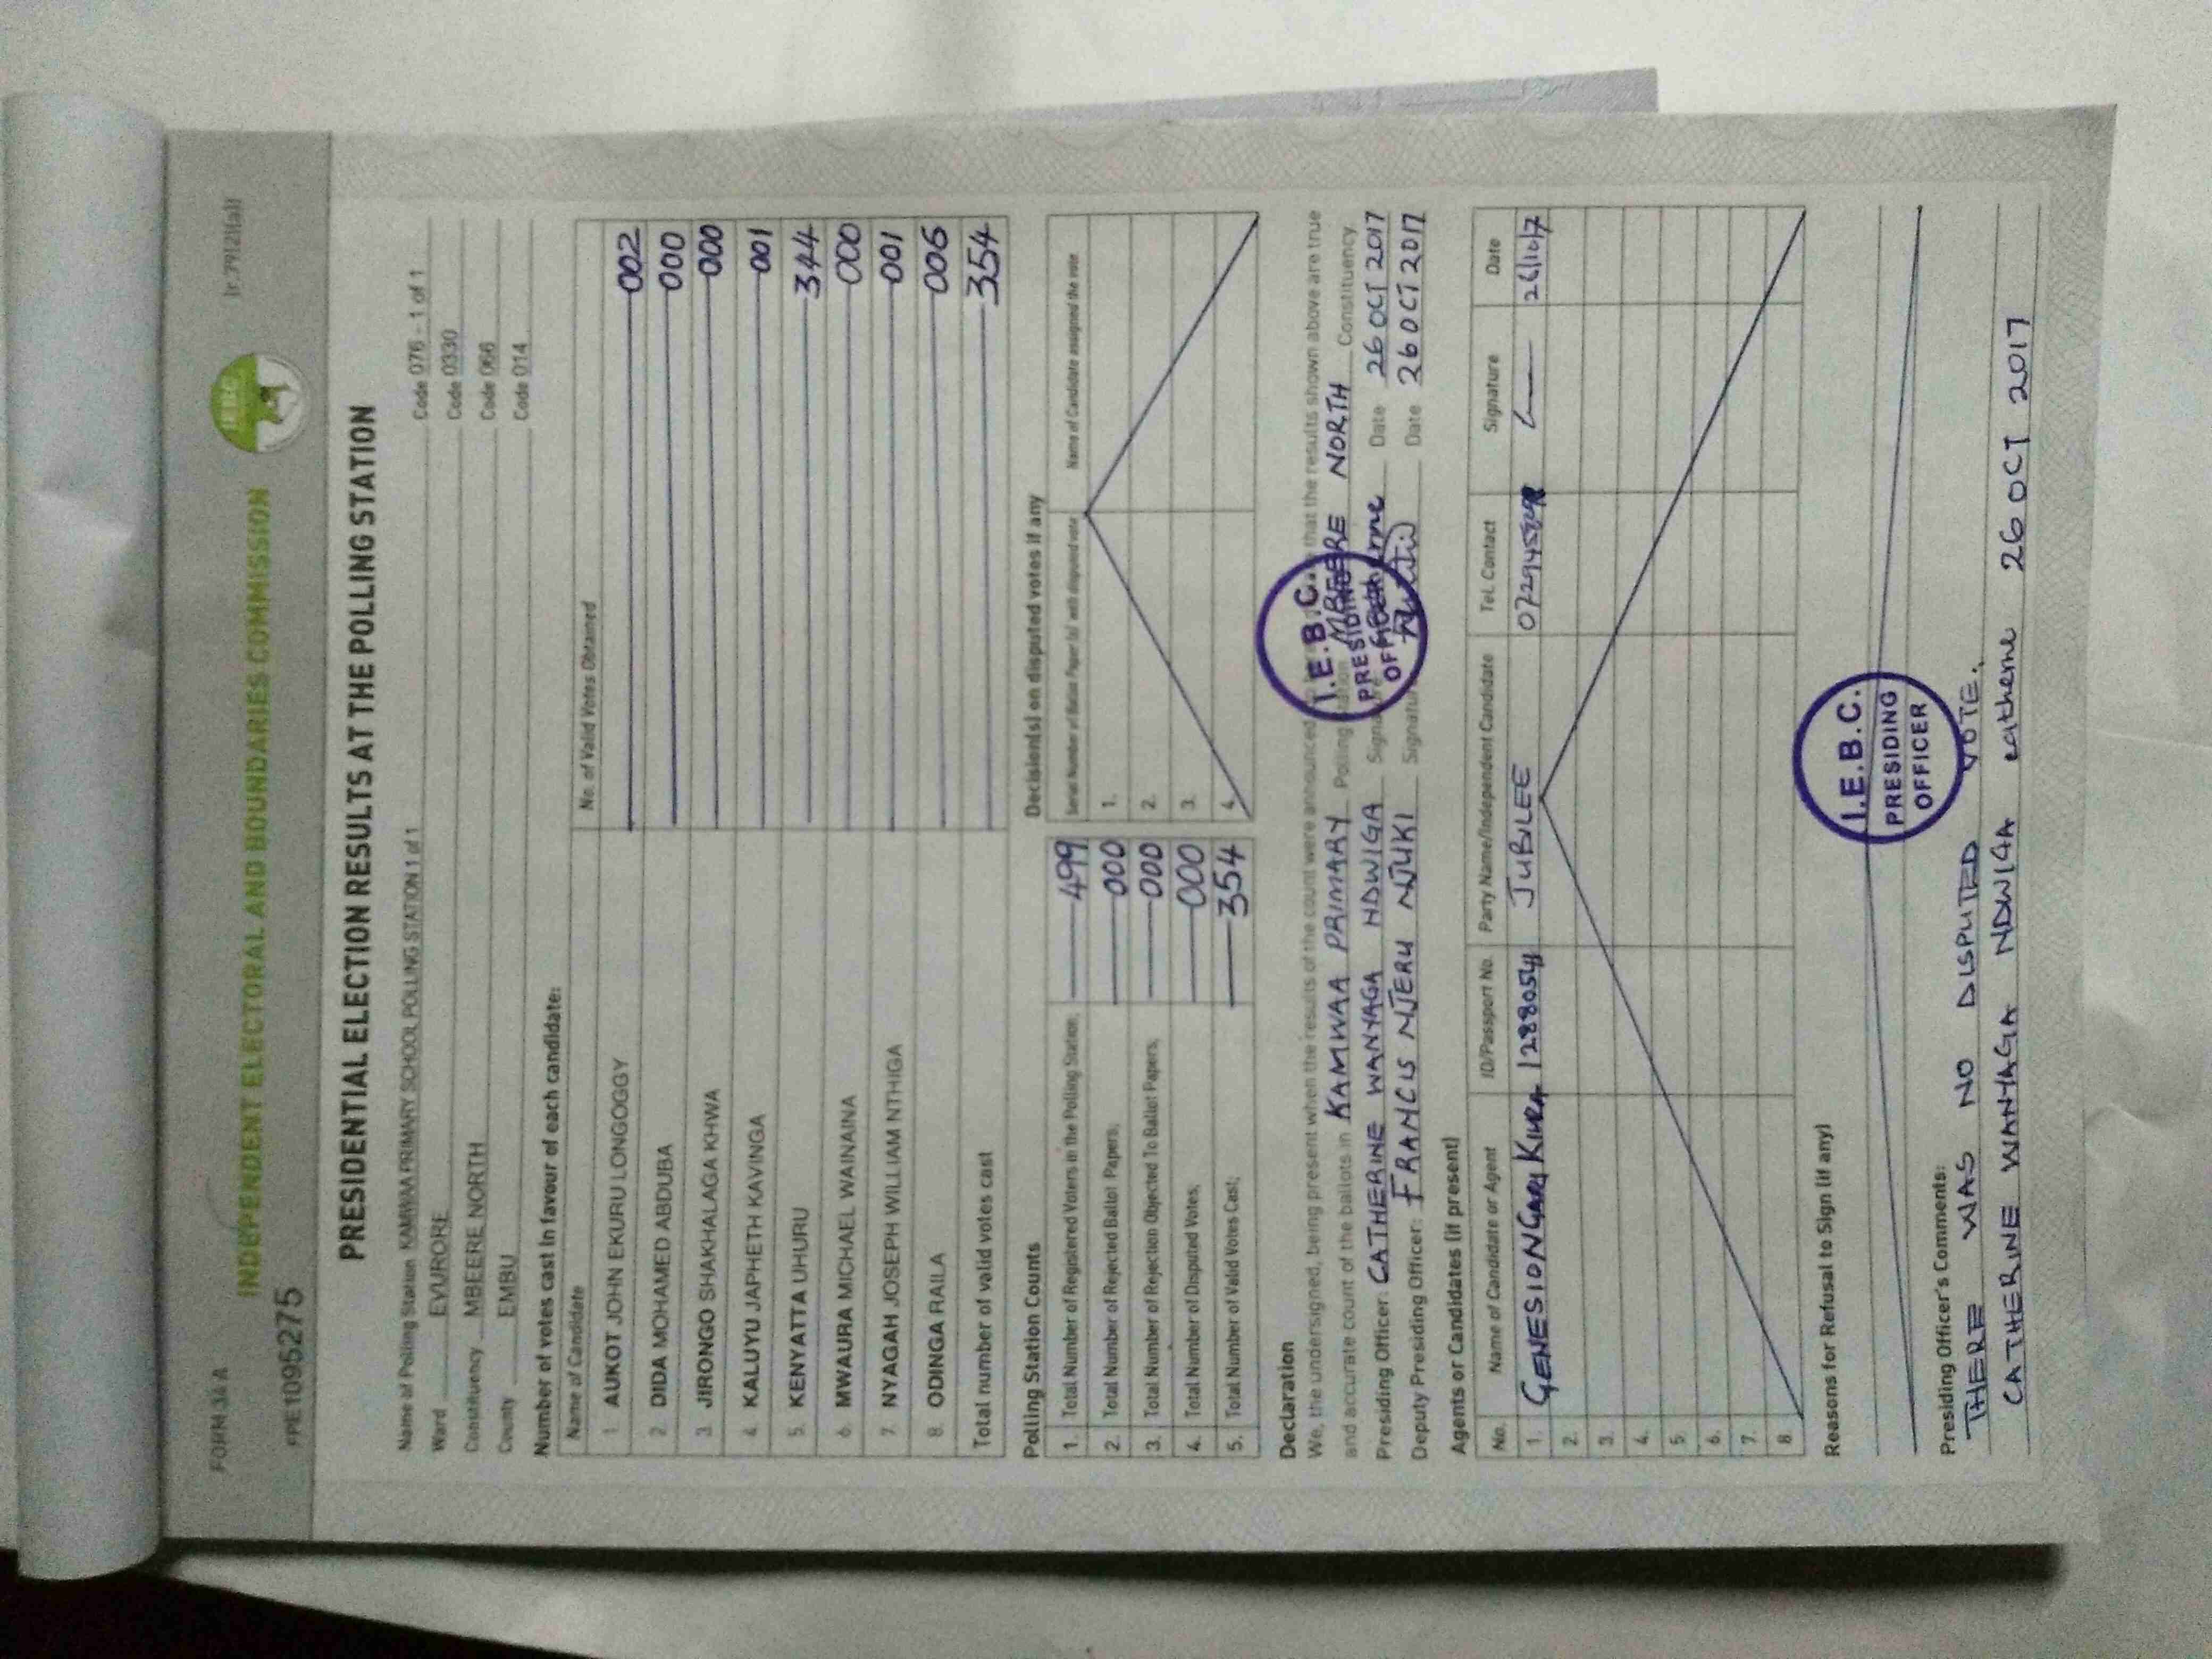 FORM 34 A
INDEPENDENT ELECTORAL AND BOUNDARIES COMMISSION
IEBC
PPE1095275
PRESIDENTIAL ELECTION RESULTS AT THE POLLING STATION
Name of Polling Station KAMWAA PRIMARY SCHOOL POLLING STATION 1 of 1 Code 076 - 1 of 1
Ward EVURORE Code 0330
Constituency MBEERE NORTH Code 066
County EMBU Code 014
Number of votes cast in favour of each candidate:
Name of Candidate No. of Valid Votes Obtained
1 AUKOT JOHN EKURU LONGOGGY 002
2 DIDA MOHAMED ABDUBA 000
3. JIRONGO SHAKHALAGA KHWA 000
4. KALUYU JAPHETH KAVINGA 001
5. KENYATTA UHURU 344
6. MWAURA MICHAEL WAINAINA 000
7. NYAGAH JOSEPH WILLIAM NTHIGA 001
8. ODINGA RAILA 006
Total number of valid votes cast 354
Polling Station Counts
1. Total Number of Registered Voters in the Polling Station; 499
2. Total Number of Rejected Ballot Papers; 000
3. Total Number of Rejection Objected To Ballot Papers; 000
4. Total Number of Disputed Votes; 000
5. Total Number of Valid Votes Cast; 354
Decision(s) on disputed votes if any
Serial Number of Ballot Paper (s) with disputed vote Name of Candidate assigned the vote
1.
2.
3.
4.
Declaration
We, the undersigned, being present when the results of the count were announced, that the results shown above are true
and accurate count of the ballots in KAMWAA PRIMARY Polling Station MBEERE NORTH Constituency.
Presiding Officer: CATHERINE WANYAGA NDWIGA Date 26 OCT 2017
Deputy Presiding Officer: FRANCIS NJERU NJUKI Signature Date 26 OCT 2017
I.E.B.C.
PRESIDING
OFFICER
Agents or Candidates (if present)
No. Name of Candidate or Agent ID/Passport No. Party Name/Independent Candidate Tel. Contact Signature Date
1. GENESIO NGARI KIURA JUBILEE 26/10/17
2.
3.
4.
5.
6.
7.
8.
Reasons for Refusal to Sign (if any)
I.E.B.C.
PRESIDING
OFFICER
Presiding Officer's Comments:
THERE WAS NO DISPUTED VOTE.
CATHERINE WANYAGA NDWIGA 26 OCT 2017